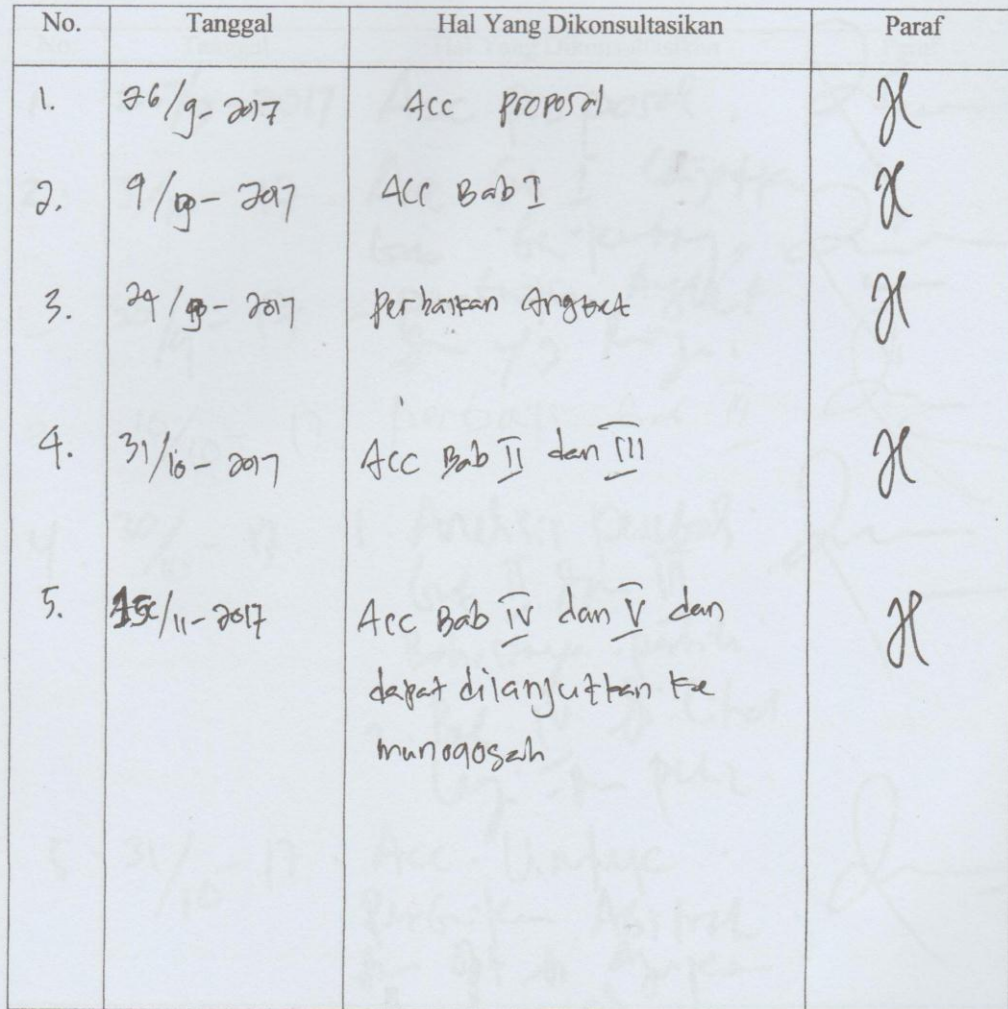 No. Tanggal Hal Yang Dikonsultasikan Paraf
1. 26/9-2017 Acc proposal
2. 9/10-2017 Acc Bab I
3. 24/10-2017 Perbaikan Angket
4. 31/10-2017 Acc Bab II dan III
5. /11-2017 Acc Bab IV dan V dan
dapat dilanjutkan ke
munaqosah